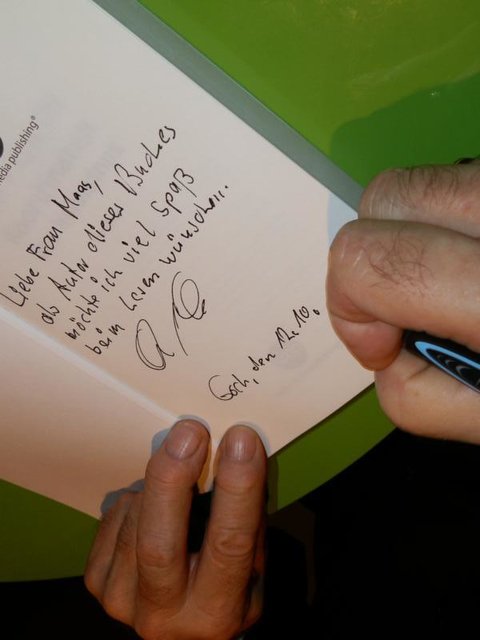 media publishing®
Liebe Frau Maas,
als Autor dieses Buches
möchte ich viel Spaß
beim Lesen wünschen.
Goch, den